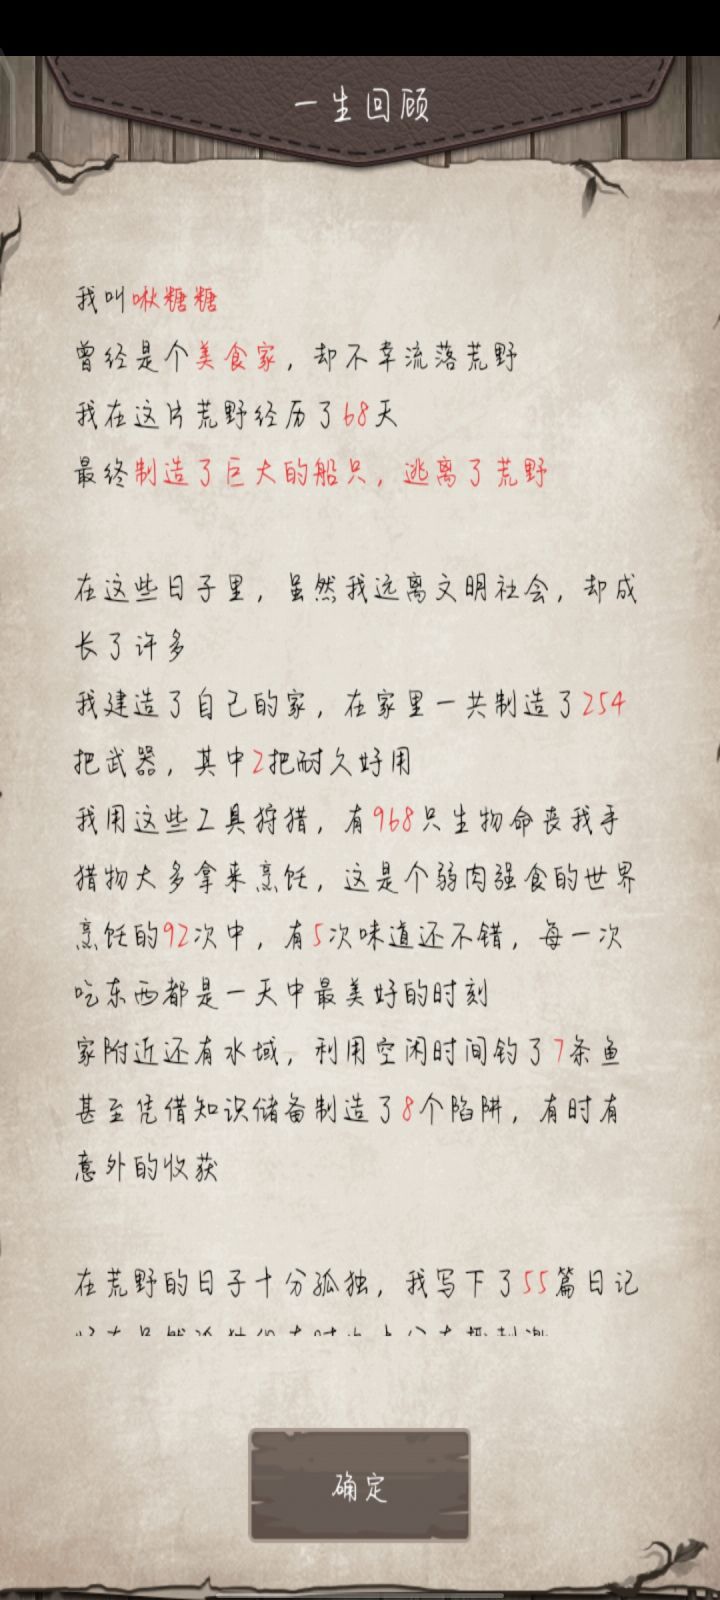 一生回顾
我叫啾糖糖
曾经是个美食家，却不幸流落荒野
我在这片荒野经历了68天
最终制造了巨大的船只，逃离了荒野
在这些日子里，虽然我远离文明社会，却成
长了许多
我建造了自己的家，在家里一共制造了254
把武器，其中2把耐久好用
我用这些工具狩猎，有968只生物命丧我手
猎物大多拿来烹饪，这是个弱肉强食的世界
烹饪的92次中，有5次味道还不错，每一次
吃东西都是一天中最美好的时刻
家附近还有水域，利用空闲时间钓了7条鱼
甚至凭借知识储备制造了8个陷阱，有时有
意外的收获
在荒野的日子十分孤独，我写下了55篇日记
确定